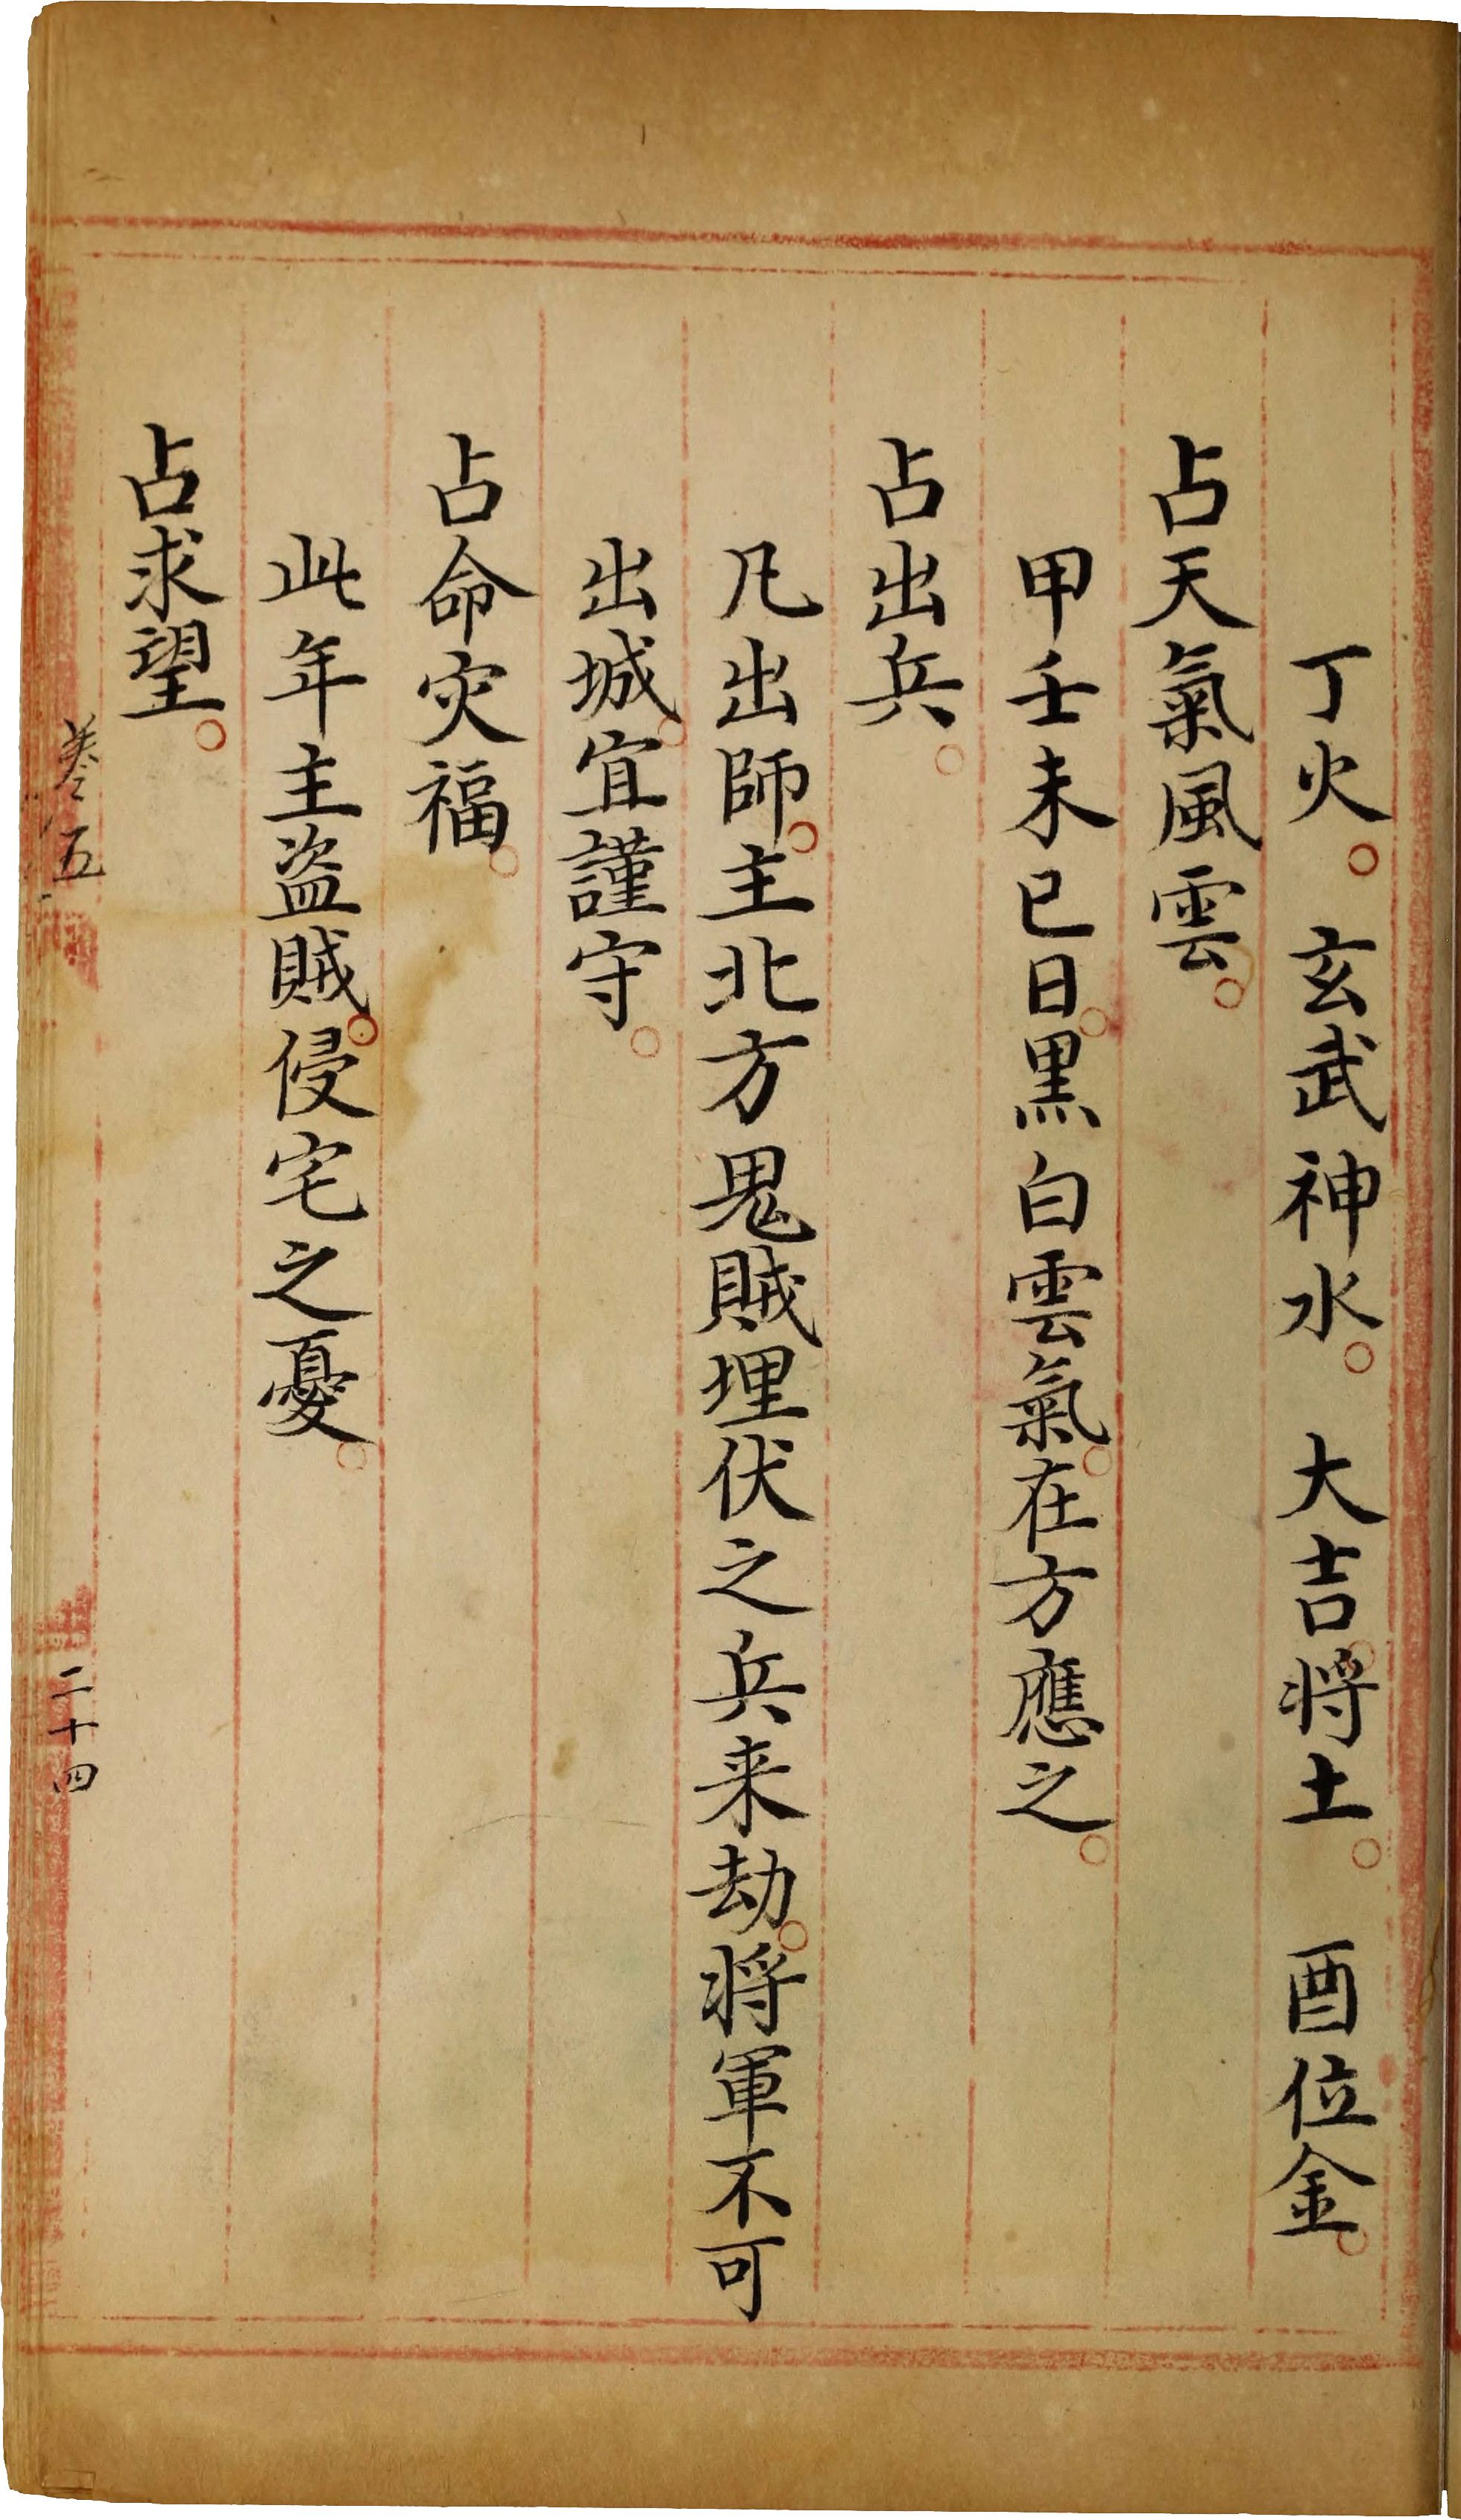 丁火。　玄武神水。　大吉將土。　酉位金。
占天氣風雲。
甲壬未巳日。黑白雲氣。在方應之。
占出兵。
凡出師。主北方鬼賊埋伏之兵来劫。將軍不可
出城。宜謹守。
占命灾福。
此年主盜賊。侵宅之憂。
占求望。
卷五
二十四